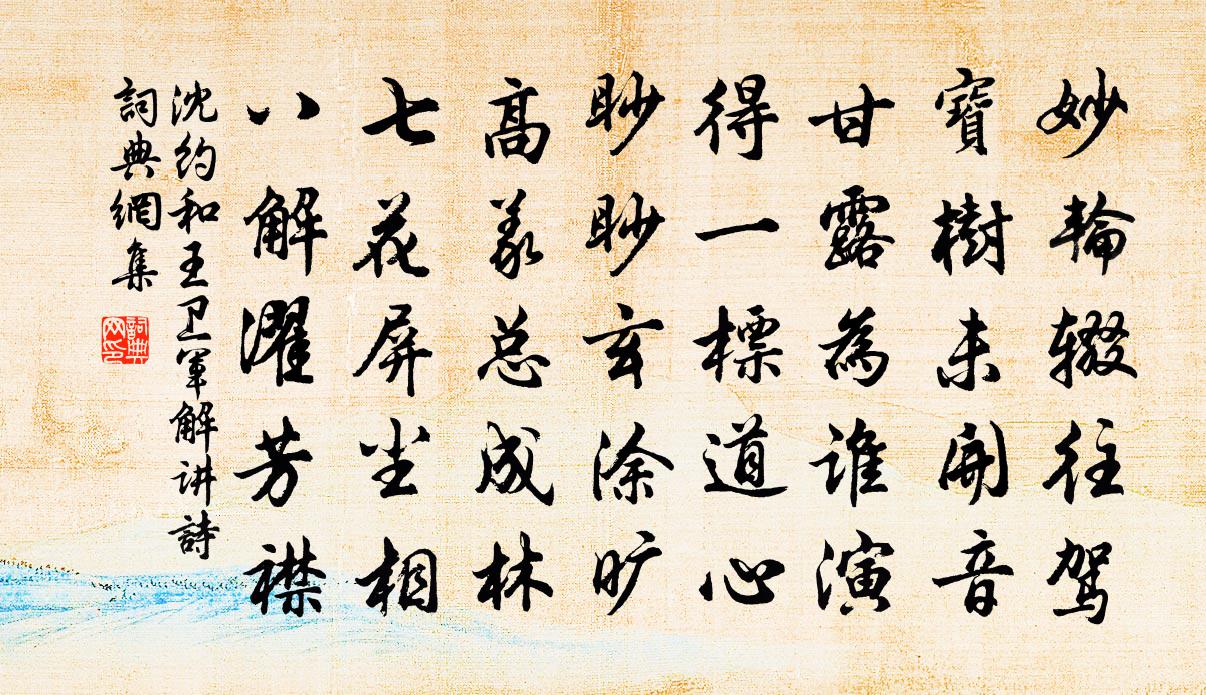 妙輪辍往驾
寶樹未開音
甘露為誰演
得一標道心
眇眇玄涂旷
高義总成林
七花屏尘相
八解濯芳襟
沈约和王卫軍解讲詩
詞典網集
詞典网印